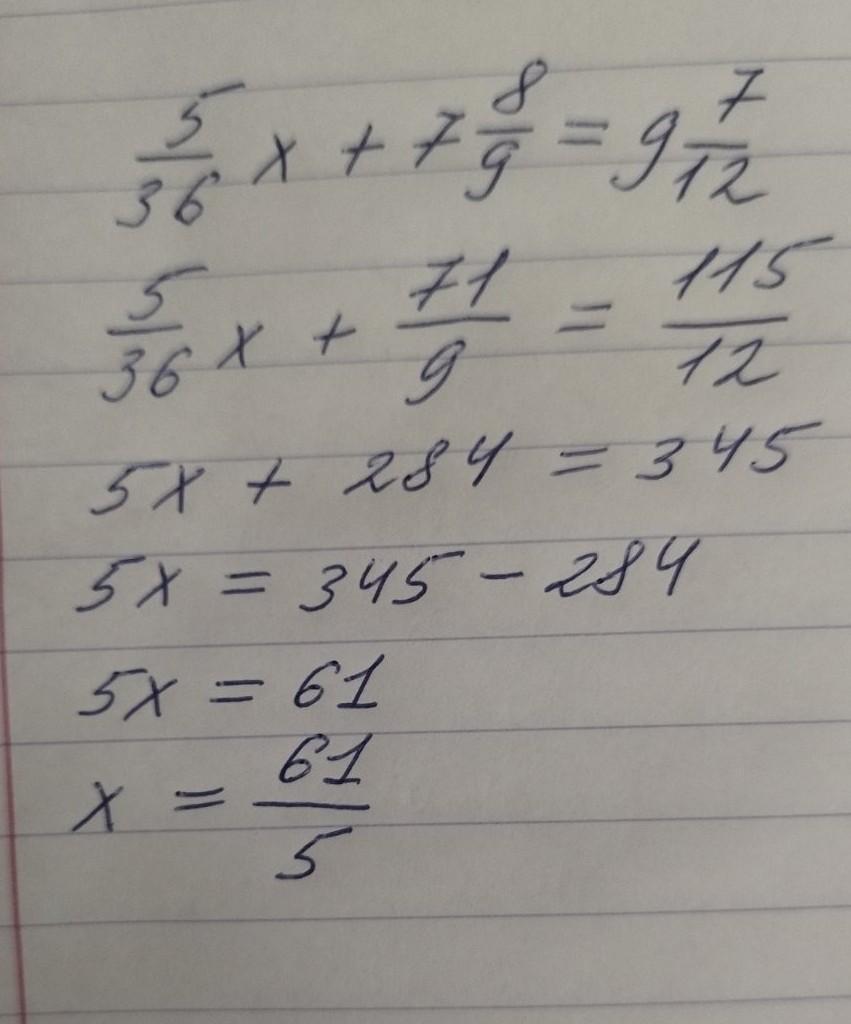 5/36 x + 7 8/9 = 9 7/12
5/36 x + 71/9 = 115/12
5x + 284 = 345
5x = 345 - 284
5x = 61
x = 61/5